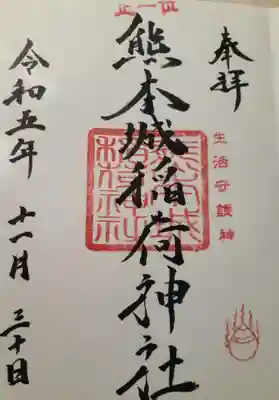 奉拝
生活守護神
正一位
熊本城稲荷神社
令和五年 十一月 三十日